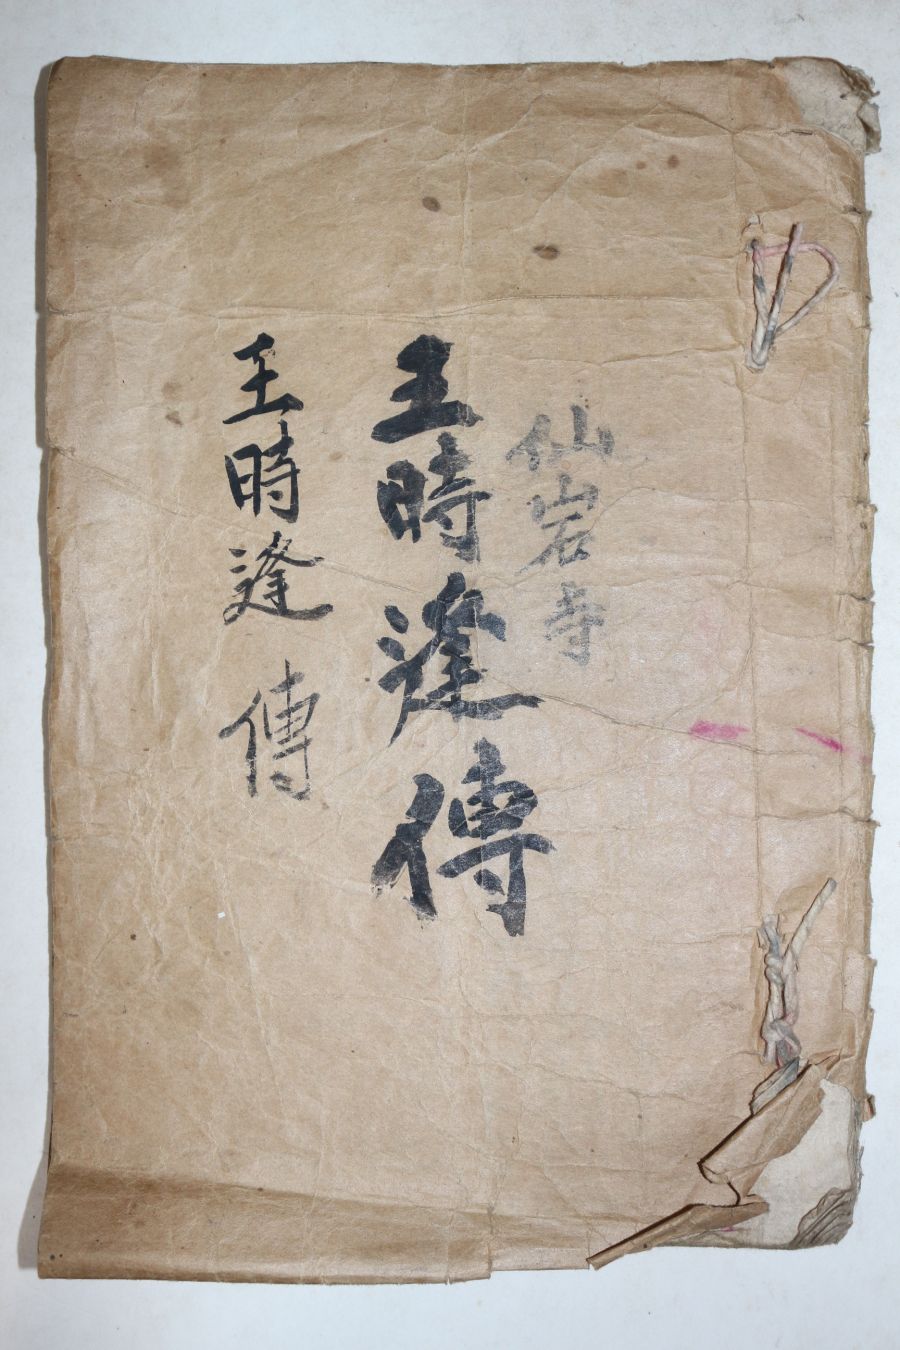 仙宕寺
王時逢傳
王時逢傳